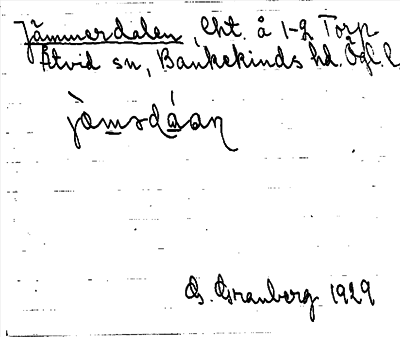 Jämmerdalen, lht. å 1-2 Torp
Åtvid sn, Bankekinds hd. Ögl. l.
jàmədáan
G. Granberg 1929